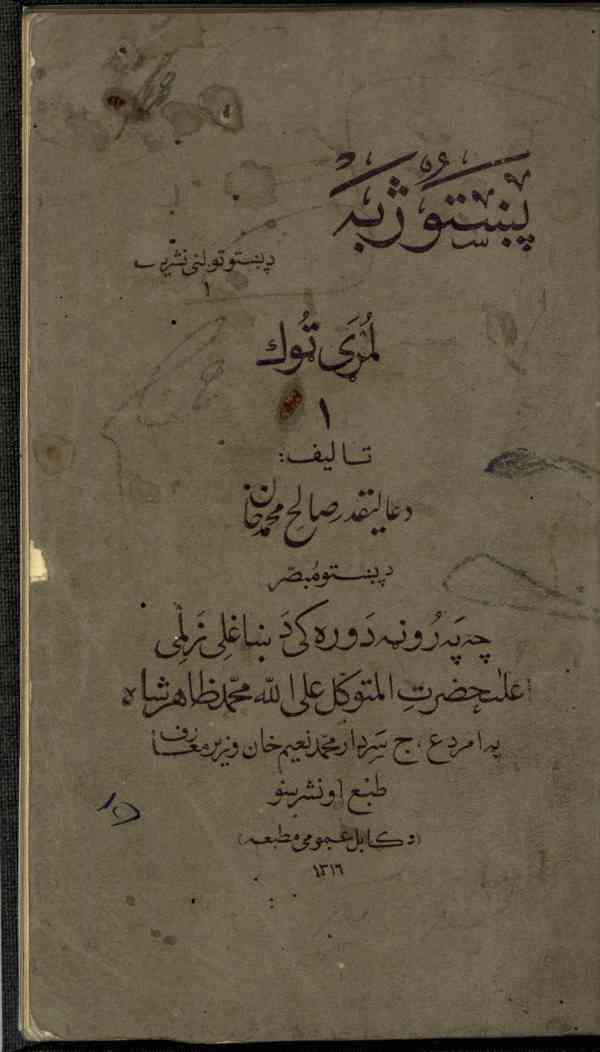 پښتو ژبه
د پښتو ټولنې نشریات
۱
لمړی ټوک
۱
تالیف:
د عالیقدر صالح محمد خان
د پښتو مبصر
چه په رونه دوره کی د ښاغلی زلمی
اعلیحضرت المتوکل علی الله محمد ظاهر شاه
په امر د ع، ج سردار محمد نعیم خان وزیر معارف
طبع او نشر سو
(د کابل عمومی مطبعه)
۱۳۱۶